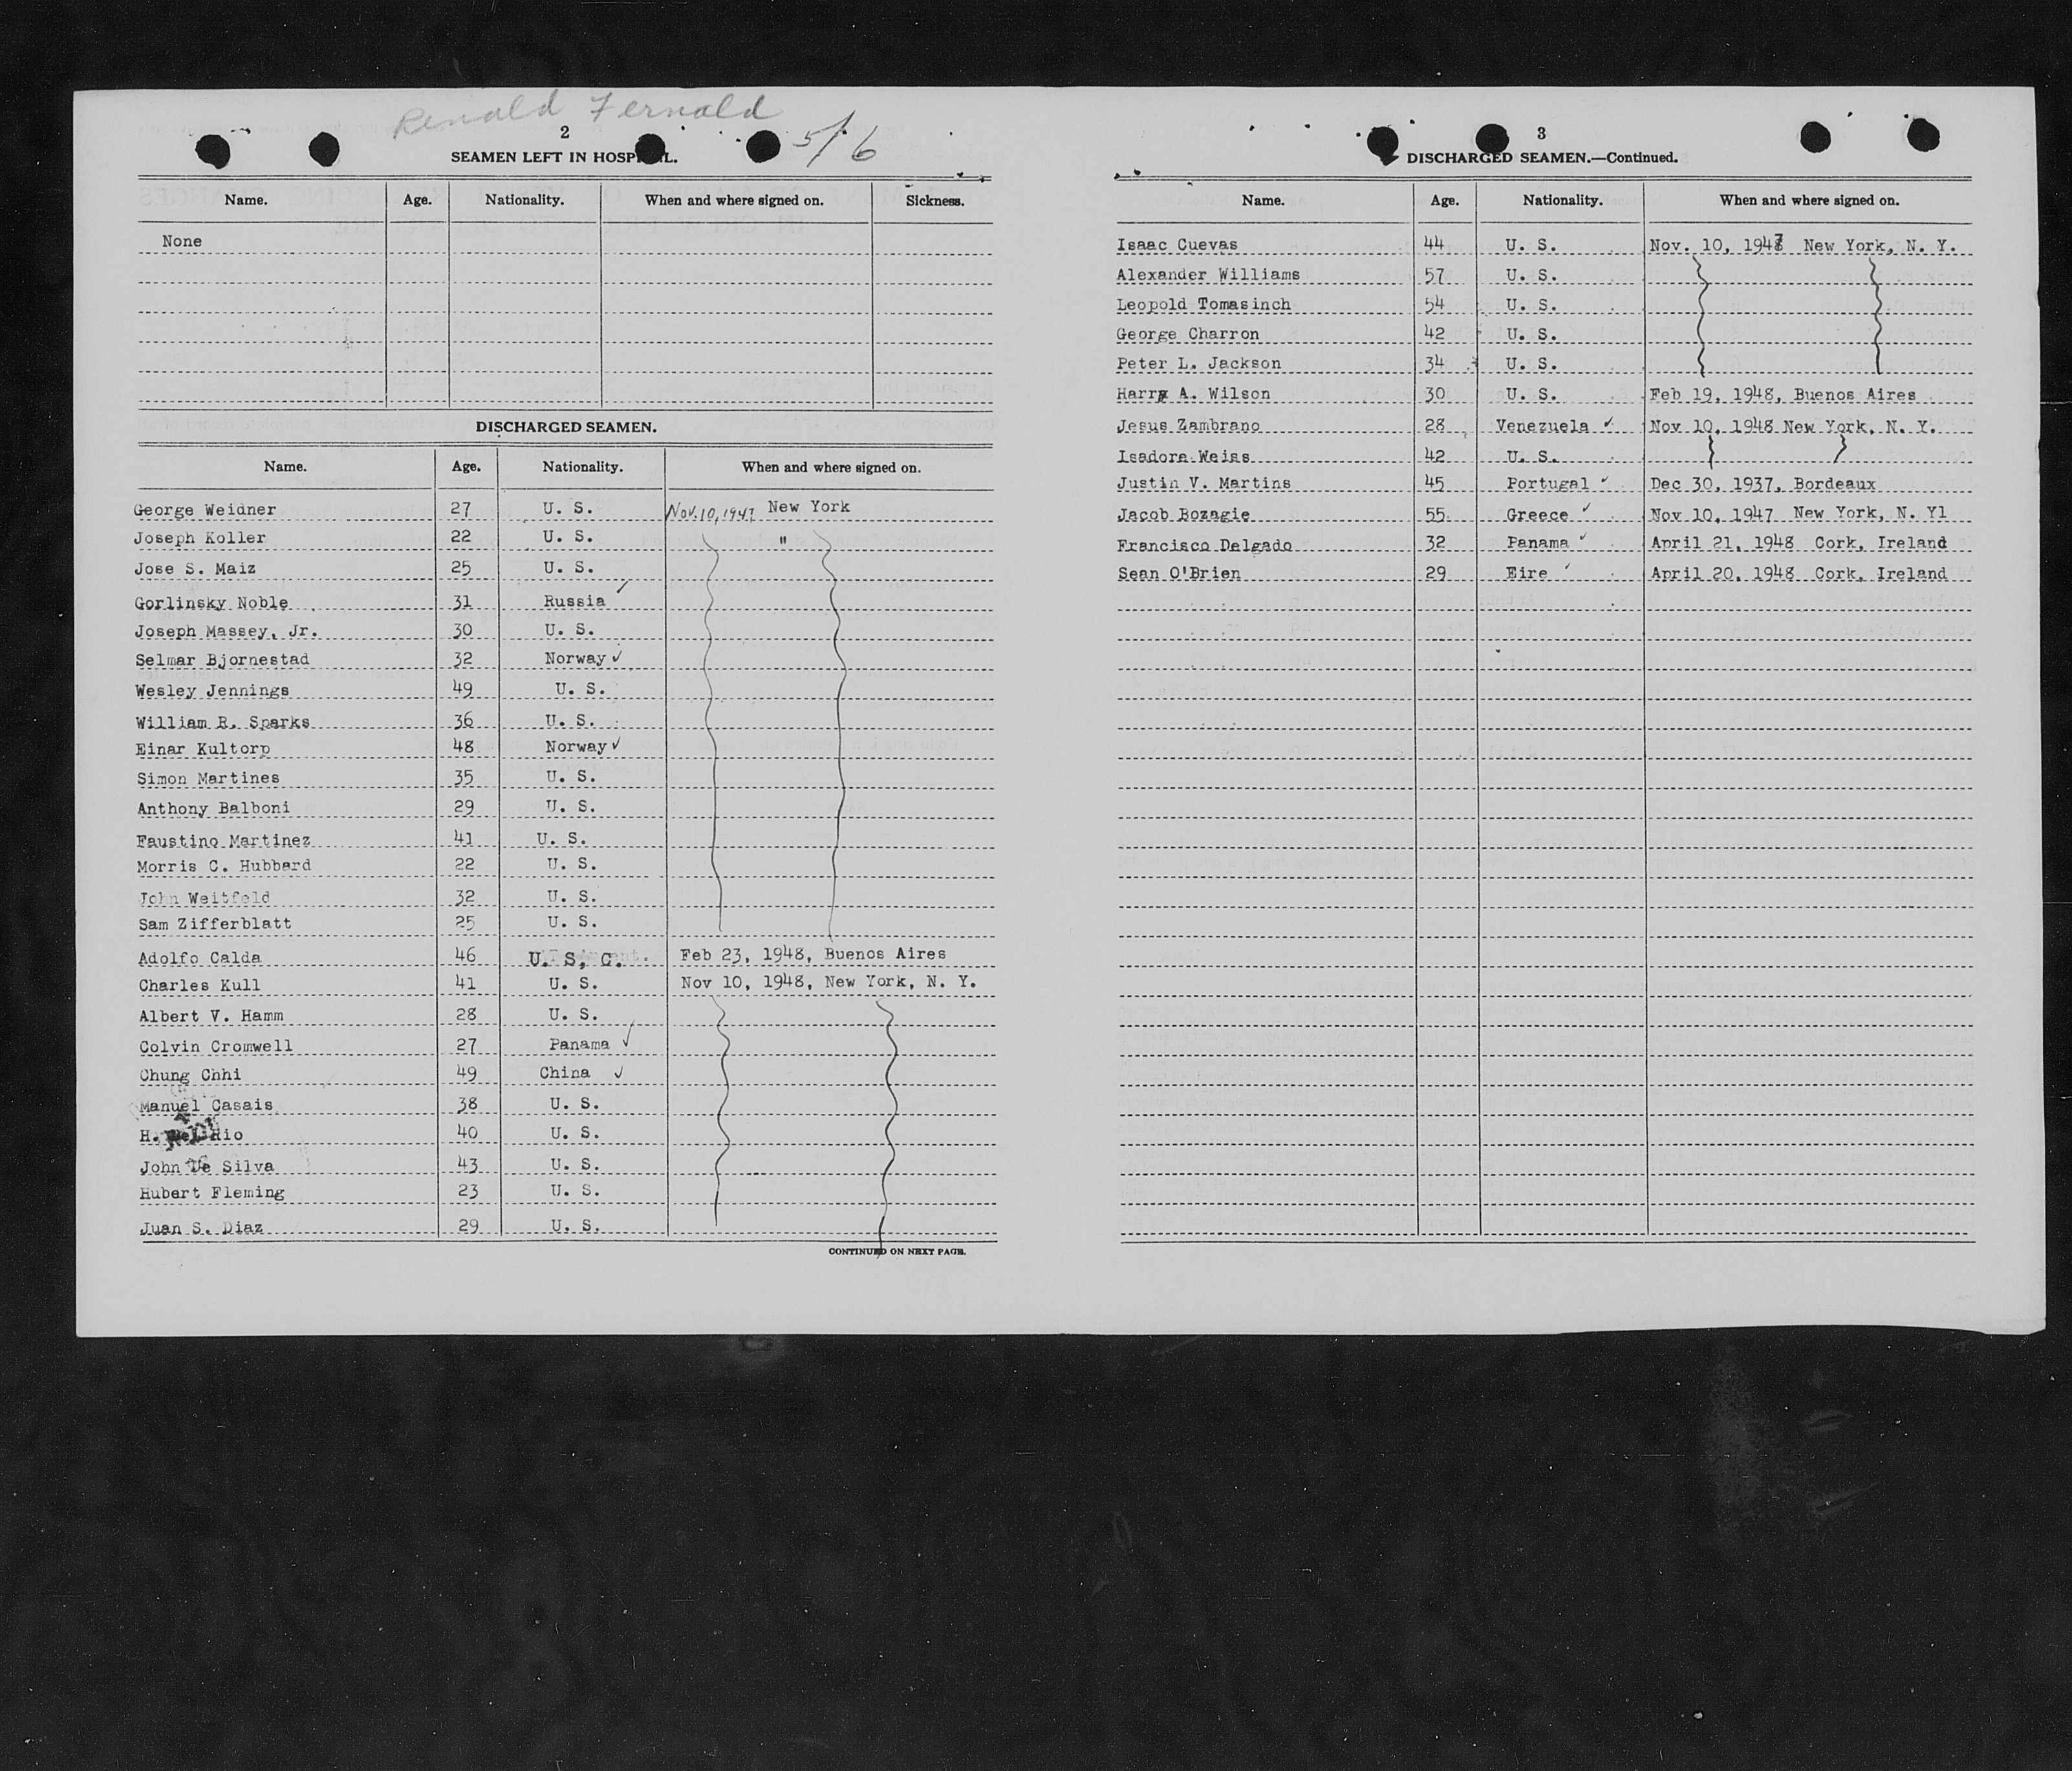 Renald Fernald
5/6
2
SEAMEN LEFT IN HOSPITAL.
Name. Age. Nationality. When and where signed on. Sickness.
None
DISCHARGED SEAMEN.
Name. Age. Nationality. When and where signed on.
George Weidner 27 U. S. Nov. 10, 1947 New York
Joseph Koller 22 U. S. "
Jose S. Maiz 25 U. S.
Gorlinsky Noble 31 Russia ✓
Joseph Massey, Jr. 30 U. S.
Selmar Bjornestad 32 Norway ✓
Wesley Jennings 49 U. S.
William R. Sparks 36 U. S.
Einar Kultorp 48 Norway ✓
Simon Martines 35 U. S.
Anthony Balboni 29 U. S.
Faustino Martinez 41 U. S.
Morris C. Hubbard 22 U. S.
John Weitfeld 32 U. S.
Sam Zifferblatt 25 U. S.
Adolfo Calda 46 U. S, C. Feb 23, 1948, Buenos Aires
Charles Kull 41 U. S. Nov 10, 1948, New York, N. Y.
Albert V. Hamm 28 U. S.
Colvin Cromwell 27 Panama ✓
Chung Chhi 49 China ✓
Manuel Casais 38 U. S.
H. Del Rio 40 U. S.
John De Silva 43 U. S.
Hubert Fleming 23 U. S.
Juan S. Diaz 29 U. S.
CONTINUED ON NEXT PAGE.
3
DISCHARGED SEAMEN.—Continued.
Name. Age. Nationality. When and where signed on.
Isaac Cuevas 44 U. S. Nov. 10, 1947 New York, N. Y.
Alexander Williams 57 U. S.
Leopold Tomasinch 54 U. S.
George Charron 42 U. S.
Peter L. Jackson 34 U. S.
Harry A. Wilson 30 U. S. Feb 19, 1948, Buenos Aires
Jesus Zambrano 28 Venezuela ✓ Nov 10, 1948 New York, N. Y.
Isadore Weiss 42 U. S.
Justin V. Martins 45 Portugal ✓ Dec 30, 1937, Bordeaux
Jacob Bozagie 55 Greece ✓ Nov 10, 1947 New York, N. Yl
Francisco Delgado 32 Panama ✓ April 21, 1948 Cork, Ireland
Sean O'Brien 29 Eire ✓ April 20, 1948 Cork, Ireland